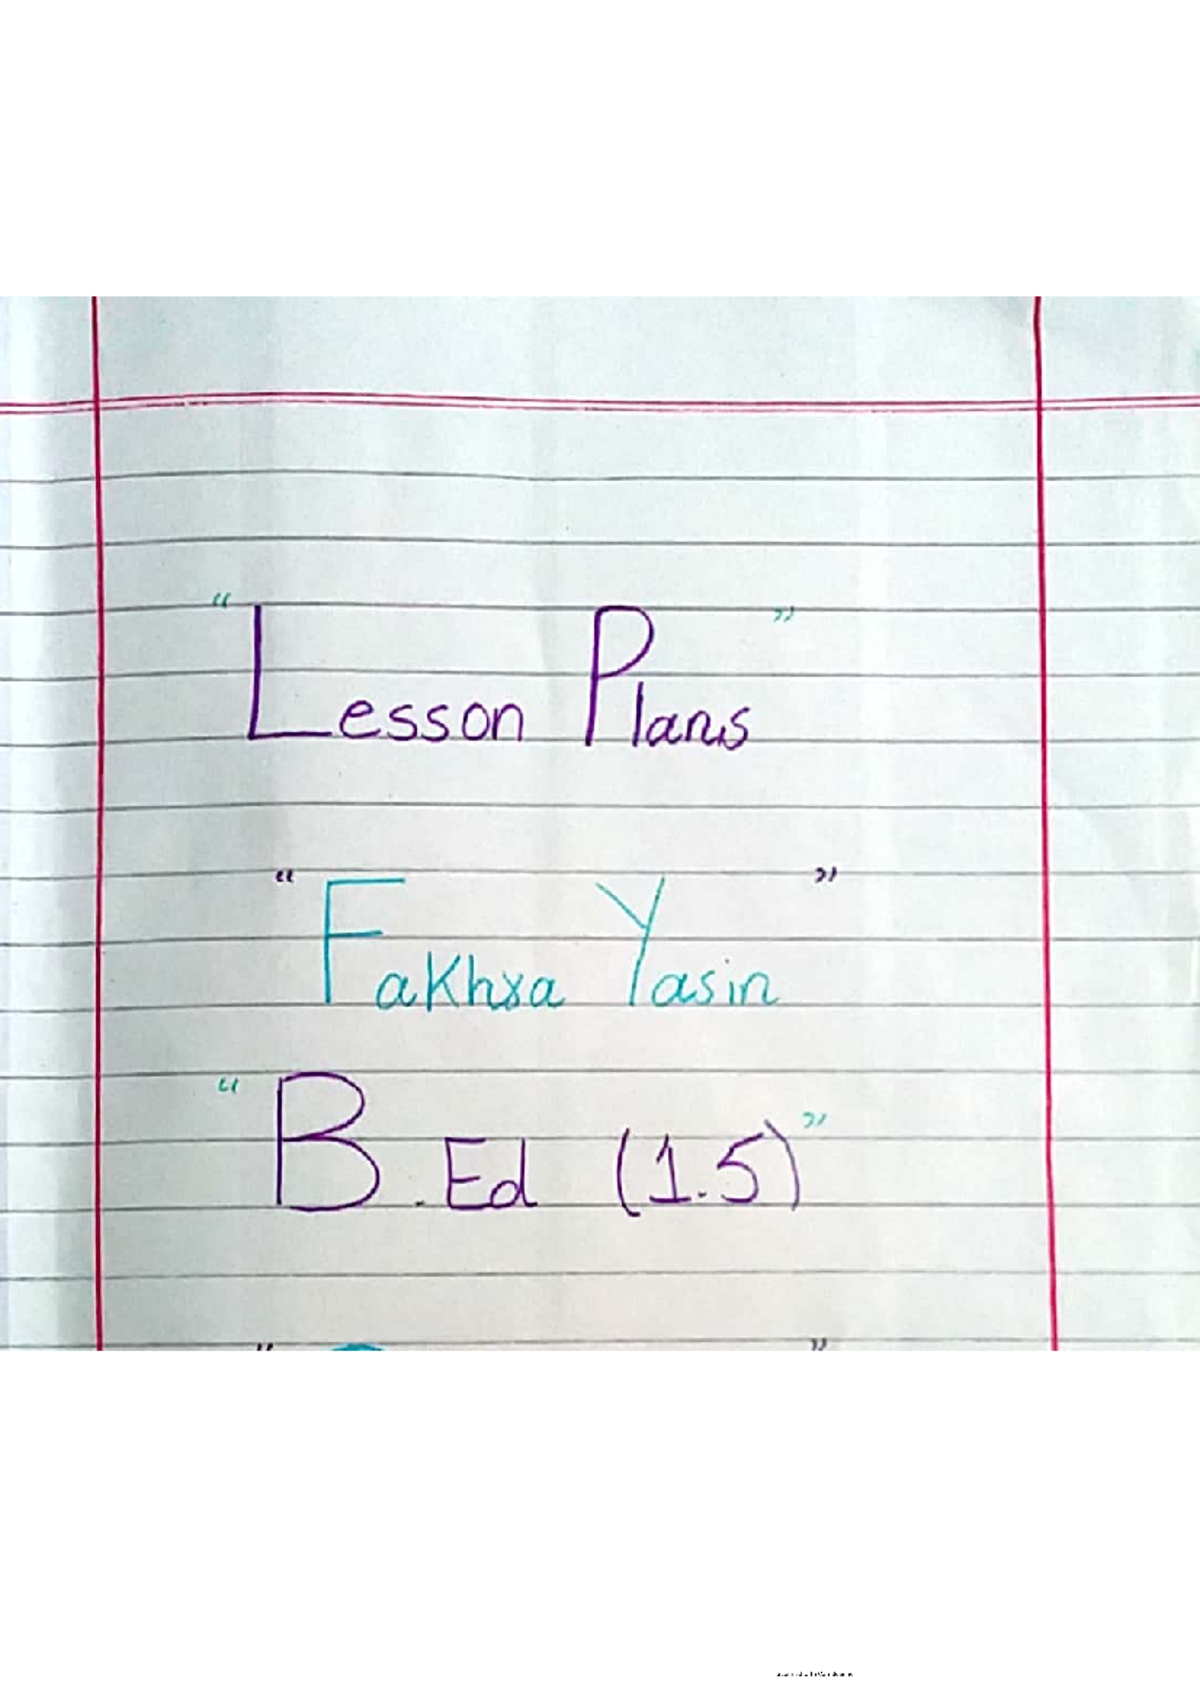 “Lesson Plans”
“Fakhra Yasin”
“B.Ed (1.5)”